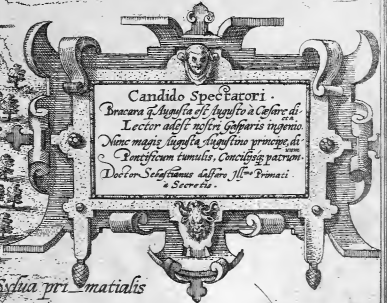 Candido Spectatori.
Bracara q̃ Augusta est Augusto à Cæsare di-
cta
Lector adest nostri Gasparis ingenio.
Nunc magis Augusta Augustino principe, di
Pontificum tumulis, Concilijsq; patrum.
Doctor Sebastianus dassaro Ill.mo Primaci
a Secretis.
ydua pri_matialis